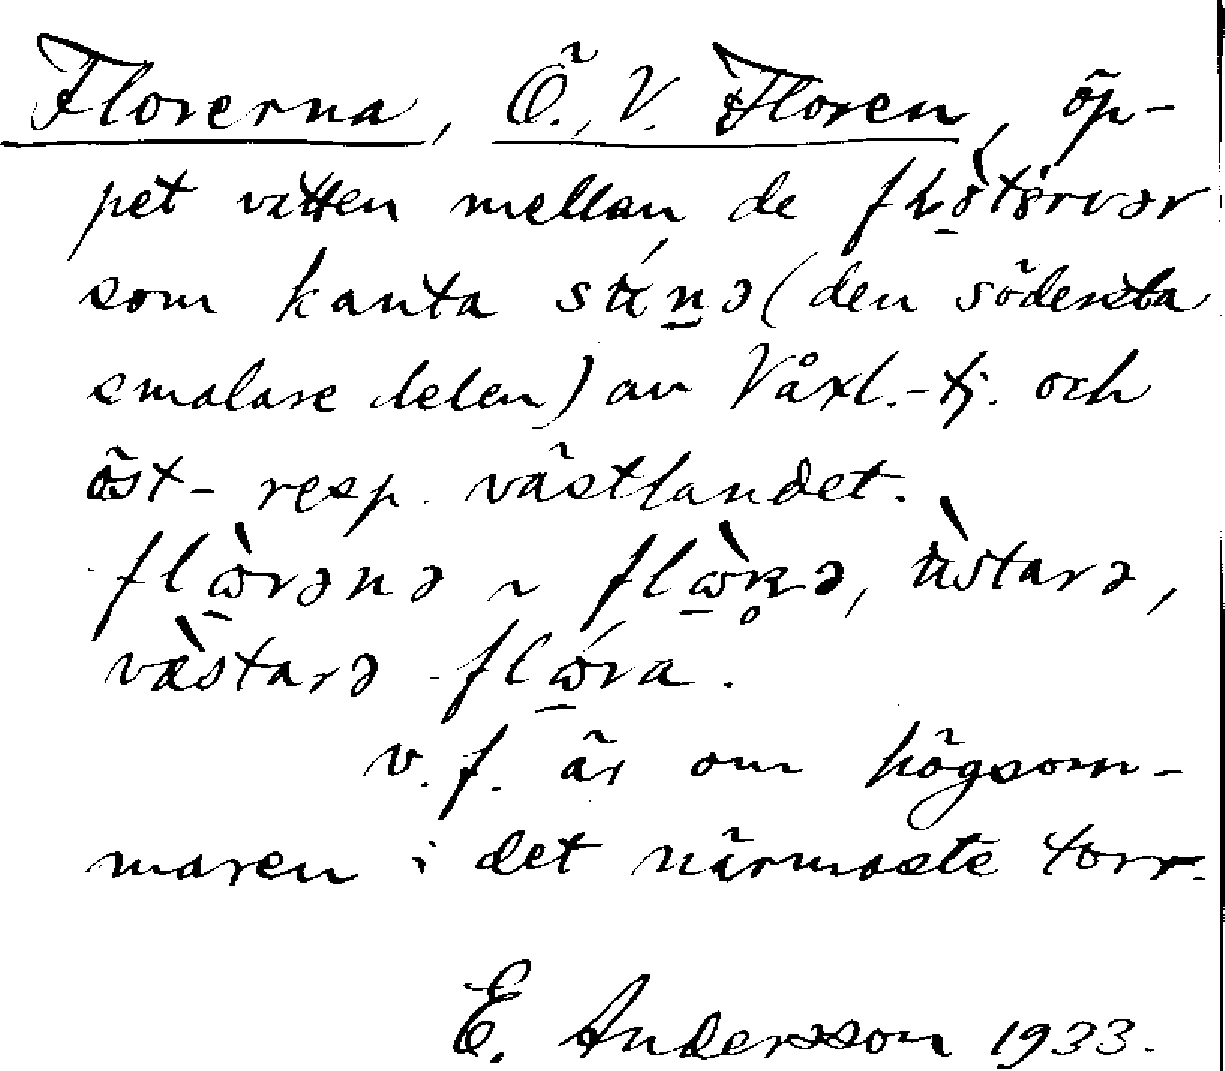 Florerna, Ö., V. Floren, öp-
pet vatten mellan de
som kanta (den södersta
smalare delen) av Våxl.-tj. och
öst- resp. västlandet.
flὼ̠rəna ~ flὼ̠ʀ̥ə, ùstarə,
væ̀starə flώ̠ra.
v. f. är om högsom-
maren i det närmaste torr.
E. Andersson 1933.